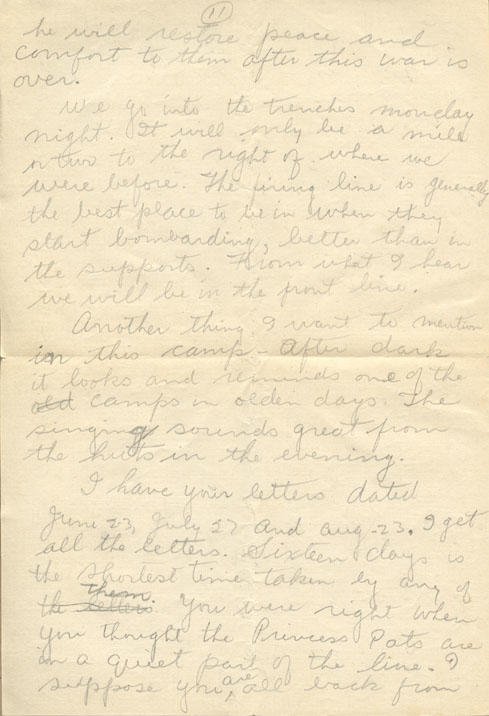 11
he will restore peace and
comfort to them after this war is
over.
We go into the trenches monday
night. It will only be a mile
or two to the right of where we
were before. The firing line is generally
the best place to be in when they
start bombarding, better than in
the supports. From what I hear
we will be in the front line.
Another thing I want to mention
in this camp - After dark
it looks and reminds one of the
old camps in olden days. The
singing sounds great from
the huts in the evening.
I have your letters dated
June 23, July 27 and aug-23. I get
all the letters. Sixteen days is
the shortest time taken by any of
them.
the letters You were right when
you thought the Princess Pats are
in a quiet part of the line. I
suppose you are all back from